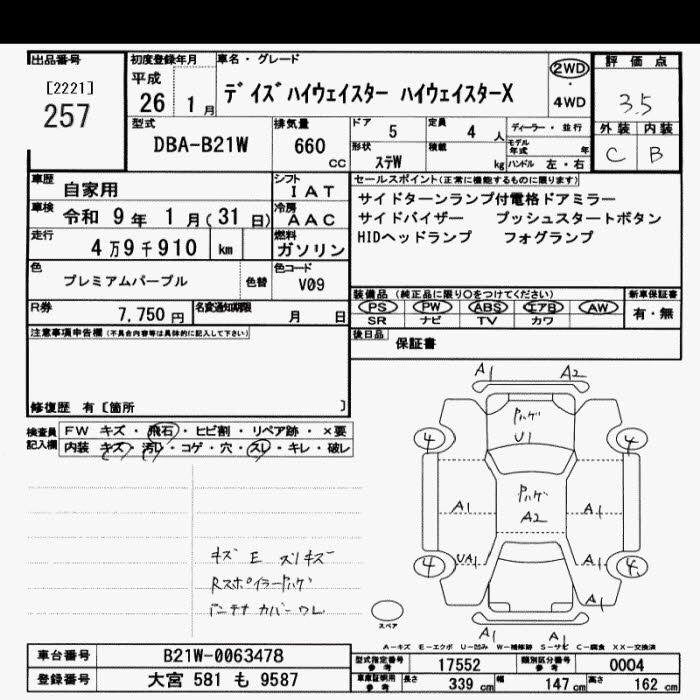 出品番号
[2221]
257
初度登録年月
平成
26 1月
車名・グレード
デイズハイウェイスター ハイウェイスターX
2WD
・
4WD
評価点
3.5
外装 内装
C B
型式
DBA-B21W
排気量
660
cc
ドア
5
定員
4 人
ディーラー・並行
形状
ステW
積載
kg
モデル年式 年
ハンドル 左・右
車歴
自家用
シフト
IAT
車検
令和 9年 1月(31日)
冷房
AAC
走行
4万9千910 km
燃料
ガソリン
色
プレミアムパープル
色替
色コード
V09
R券
7,750円
名変通知期限
月 日
セールスポイント(正常に機能するものに限ります)
サイドターンランプ付電格ドアミラー
サイドバイザー プッシュスタートボタン
HIDヘッドランプ フォグランプ
装備品(純正品に限り○をつけてください)
PS PW ABS エアB AW
SR ナビ TV カワ
新車保証書
有・無
後日品
保証書
注意事項申告欄(不具合内容等は具体的に記入して下さい)
修復歴 有〔箇所 〕
検査員記入欄
FW キズ・飛石・ヒビ割・リペア跡・×要
内装 キズ・汚レ・コゲ・穴・スレ・キレ・破レ
キズ E スリキズ
Rスポイラーハゲ
アンテナカバーウレ
A1 A2
Pハゲ
U1
4 4
Pハゲ
A2
A1 A1
UA1 A1
4 4
A1
A1 A1
スペア
A-キズ E-エクボ U-凹み W-補修跡 S-サビ C-腐食 XX-交換済
車台番号
B21W-0063478
登録番号
大宮 581 も 9587
型式指定番号
参考
17552
類別区分番号
参考
0004
車庫証明用
参考
長さ 339 cm
幅 147 cm
高さ 162 cm